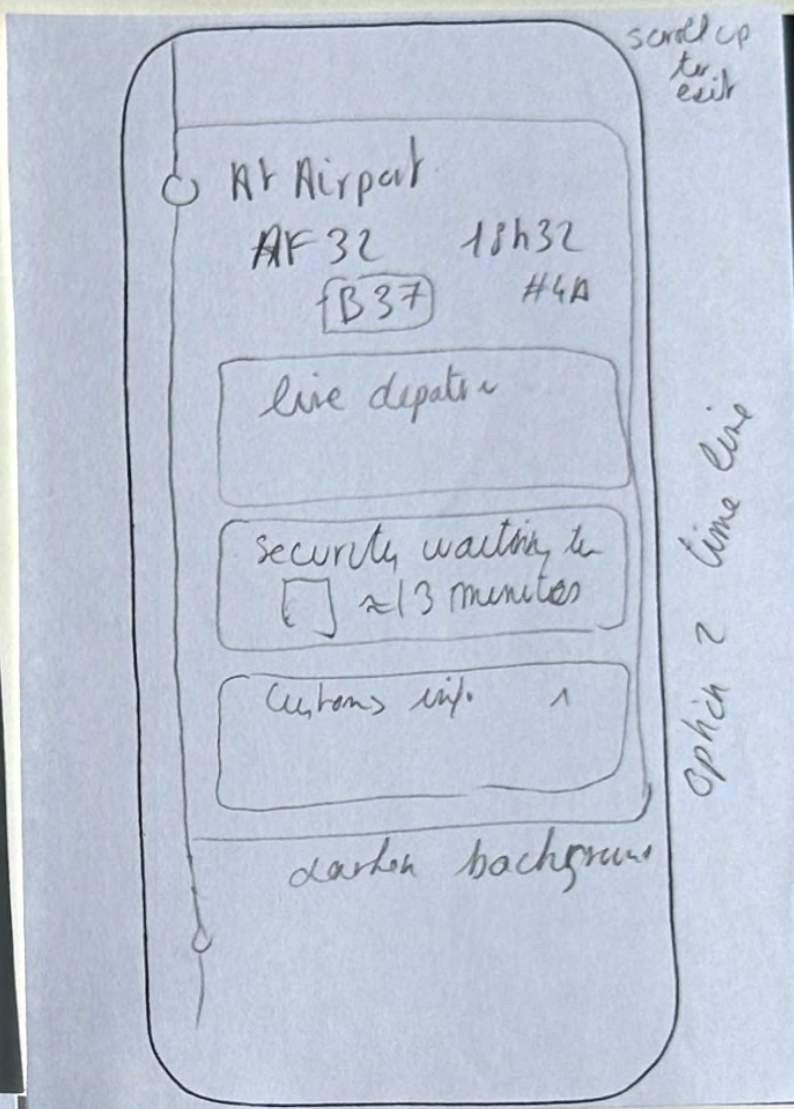 scroll up
to
exit
At Airport
AF 32 18h32
B37 #4A
live
security waiting
≈13 minutes
Customs info. ^
darken
option 2 time line